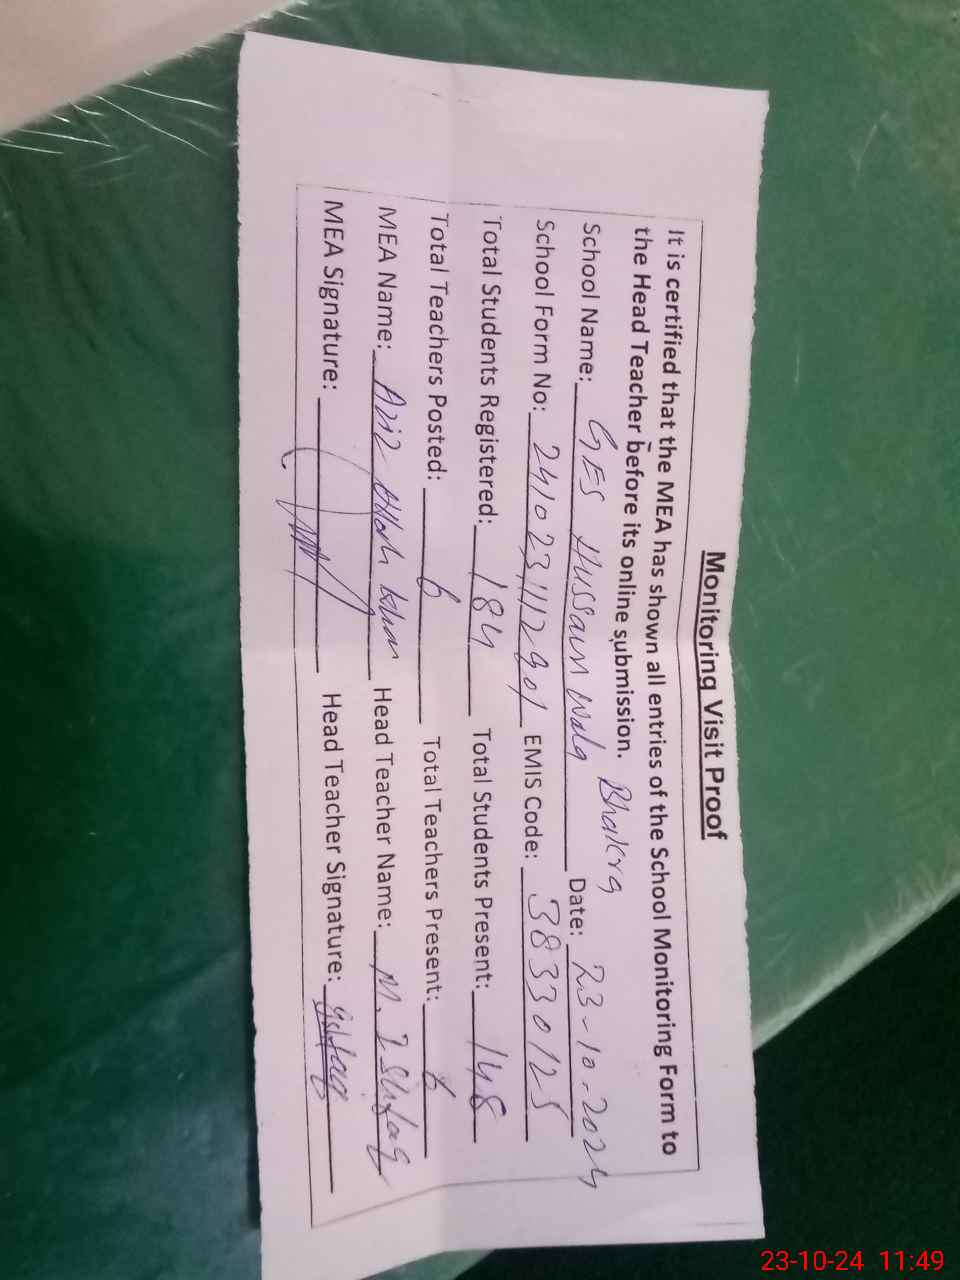 Monitoring Visit Proof
It is certified that the MEA has shown all entries of the School Monitoring Form to
the Head Teacher before its online submission.
School Name: GES Hussain Wala Bhakra Date: 23-10-2024
School Form No: EMIS Code: 38330125
Total Students Registered: 184 Total Students Present: 148
Total Teachers Posted: 6 Total Teachers Present: 6
MEA Name: Aziz Ullah Khan Head Teacher Name: M. Ishfaq
MEA Signature: Head Teacher Signature:
23-10-24 11:49